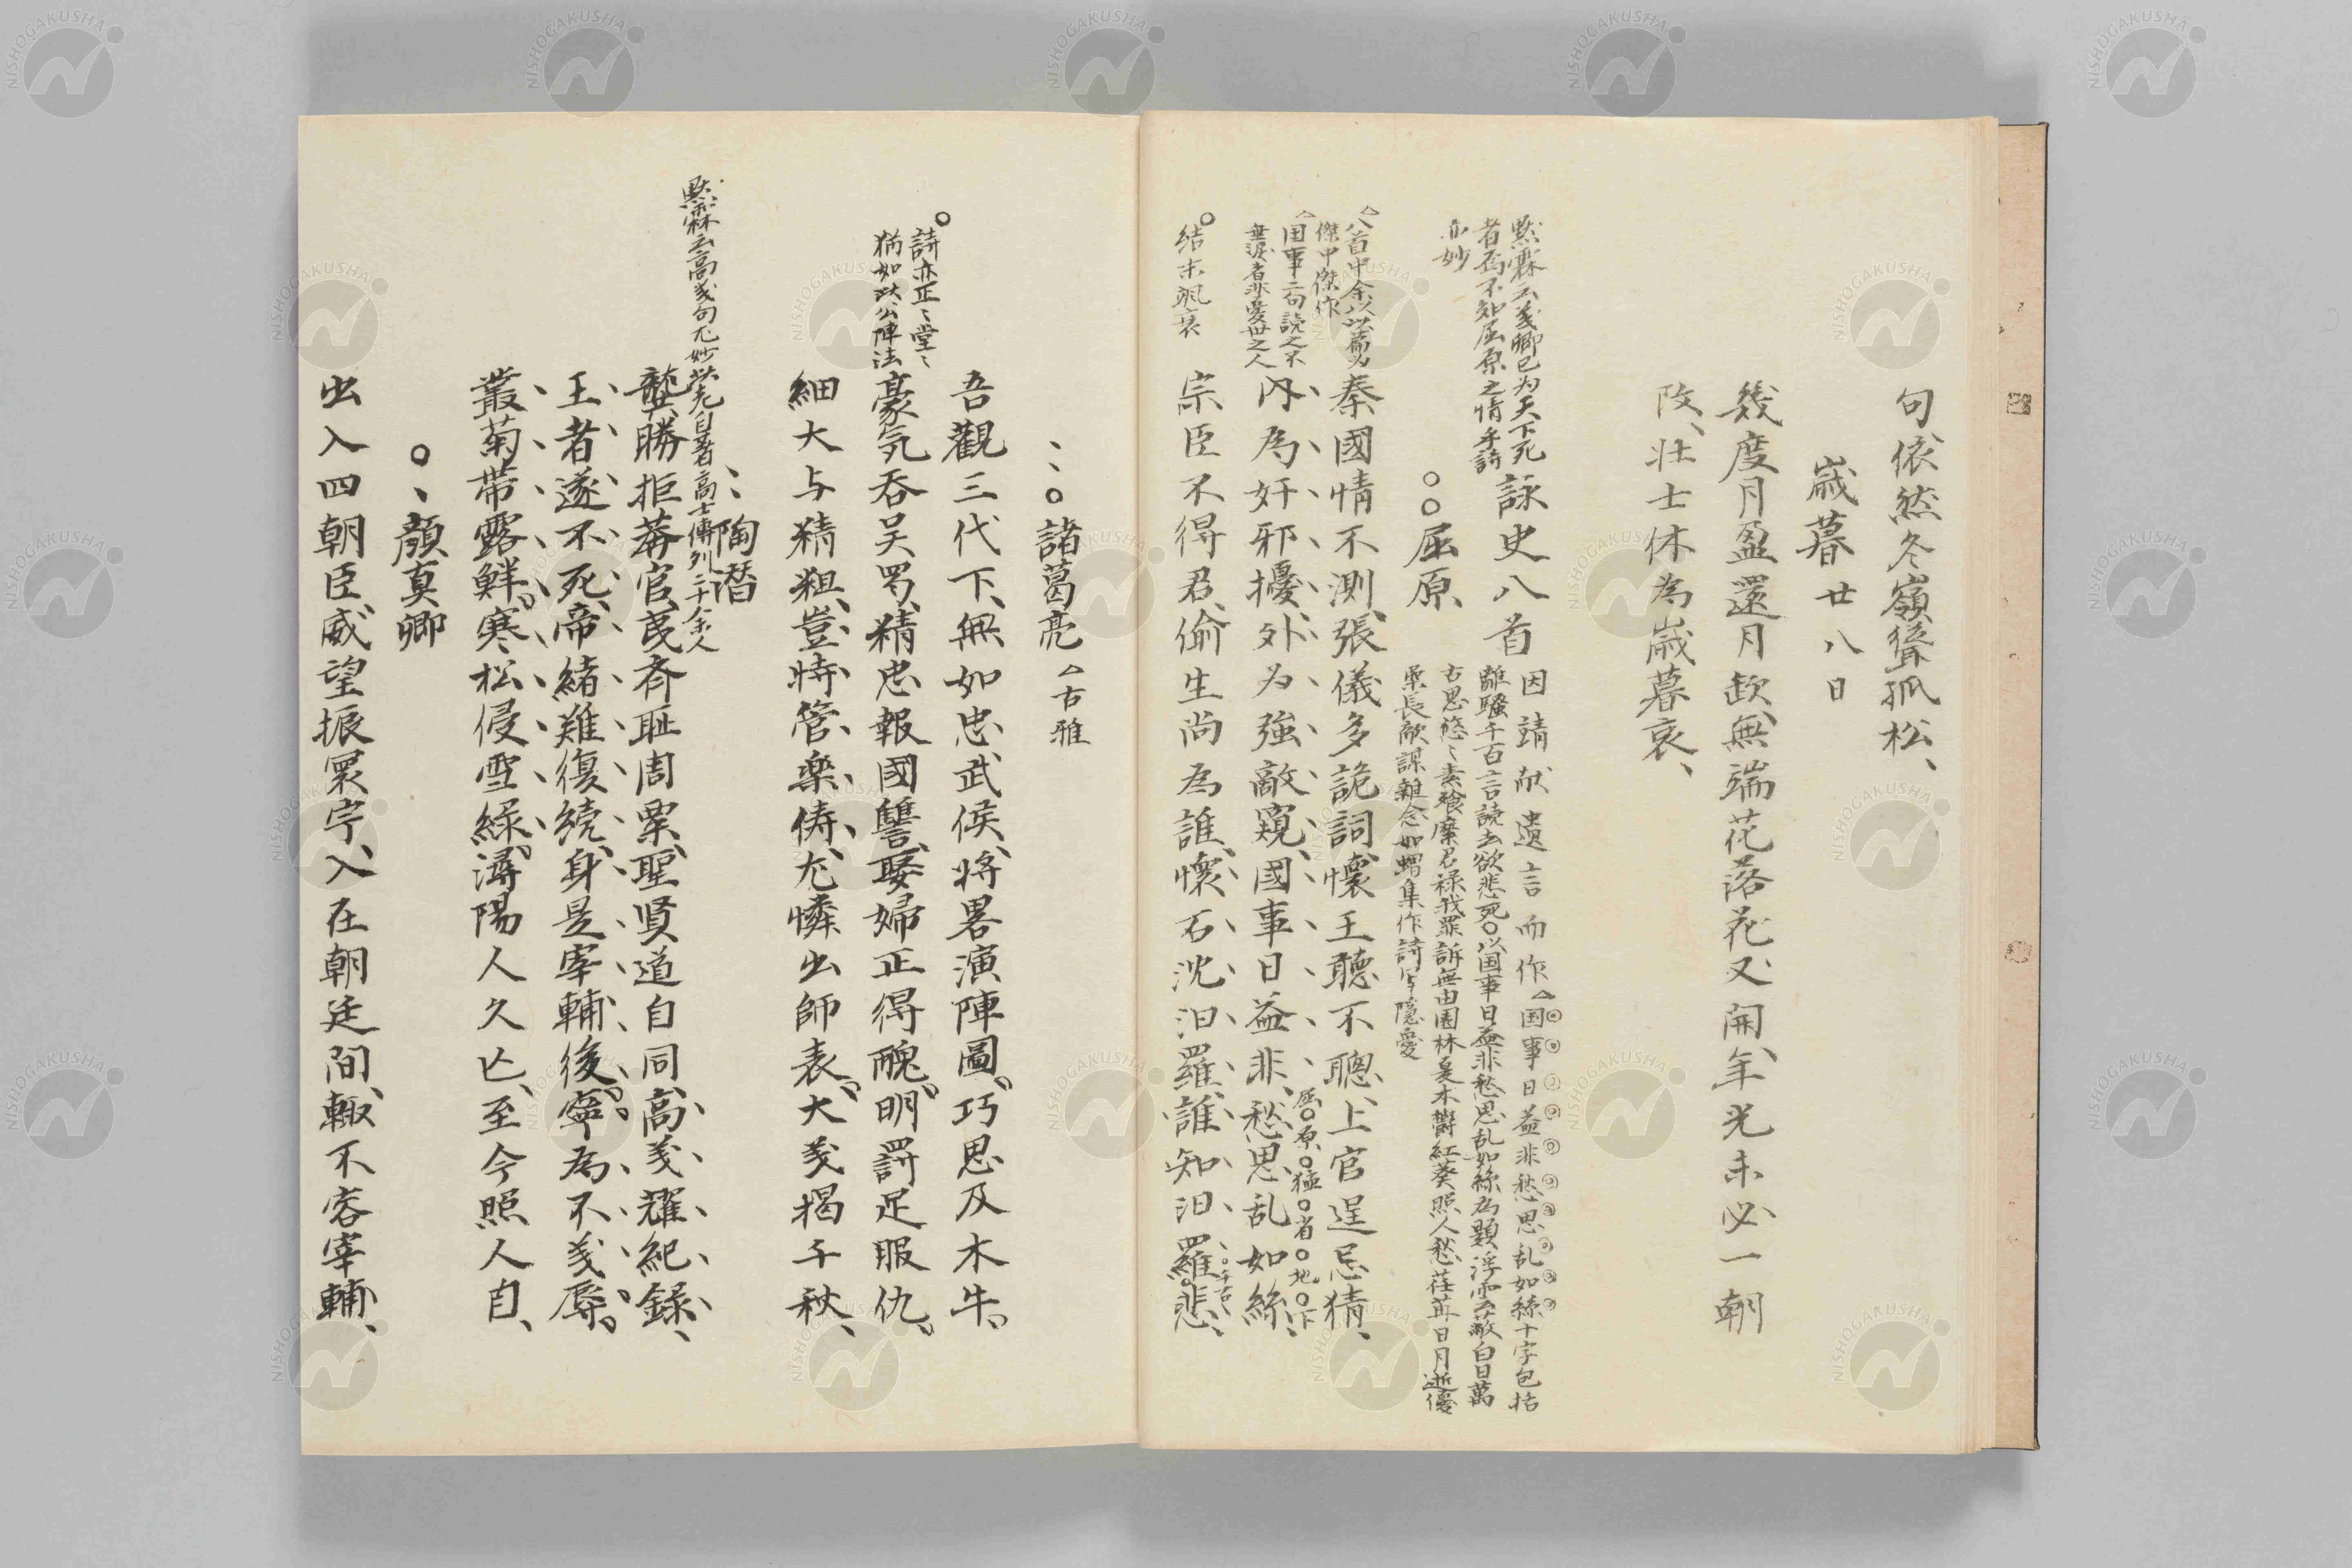 句依然冬嶺聳孤松、
歳暮廿八日
幾度月盈還月欠、無端花落花又開、年光未必一朝
改、壮士休為歳暮哀、
黙霖云義卿已為天下死
者焉不知屈原之情乎詩
亦妙
詠史八首
因請献遺言而作△国事日益非愁思乱如絲十字包括
離騒千百言読去欲悲死○以国事日益非愁思乱如絲為題浮雲蔽白日萬
古思悠〻素飱糜君禄我罪訴無由園林是木欝紅葵照人愁荏苒日月逝優
柔長敵謀雑念如蝟集作詩写隠憂
○○屈原、
△八首中余以此篇為
傑中傑作
△国事二句読之不
垂涙者非愛世之人
○結末颯衰
秦國情不測、張儀多詭詞、懐王聴不聰、上官逞忌猜、
内為奸邪擾、外為強敵窺、國事日益非、愁思乱如絲、
屈○原○猛○省○地○下
宗臣不得君、偷生尚為誰、懐石沈汨羅、誰知汨羅悲、
○千古
、、○諸葛亮△古雅
吾觀三代下、無如忠武侯、将畧演陣圖、巧思及木牛。
○詩亦正〻堂〻
猶如此公陣法
豪気呑吴蜀、精忠報國讐、娶婦正得醜、明罰足服仇。
細大与精粗、豈特管楽儔、尤憐出師表、大義掲千秋、
黙霖云高義句尤妙 此老自著高士傳列二十余人
、、陶潜
龔勝拒莽官、夷齊耻周粟、聖賢道自同、高義耀紀録、
王者遂不死、帝緒難復続、身是宰輔後、寧為不義辱。
叢菊帯露鮮。寒松侵雪緑、潯陽人久亡、至今照人目、
○、顔真卿
出入四朝臣、威望振寰宇、入在朝廷間、輙不容宰輔、
NISHOGAKUSHA